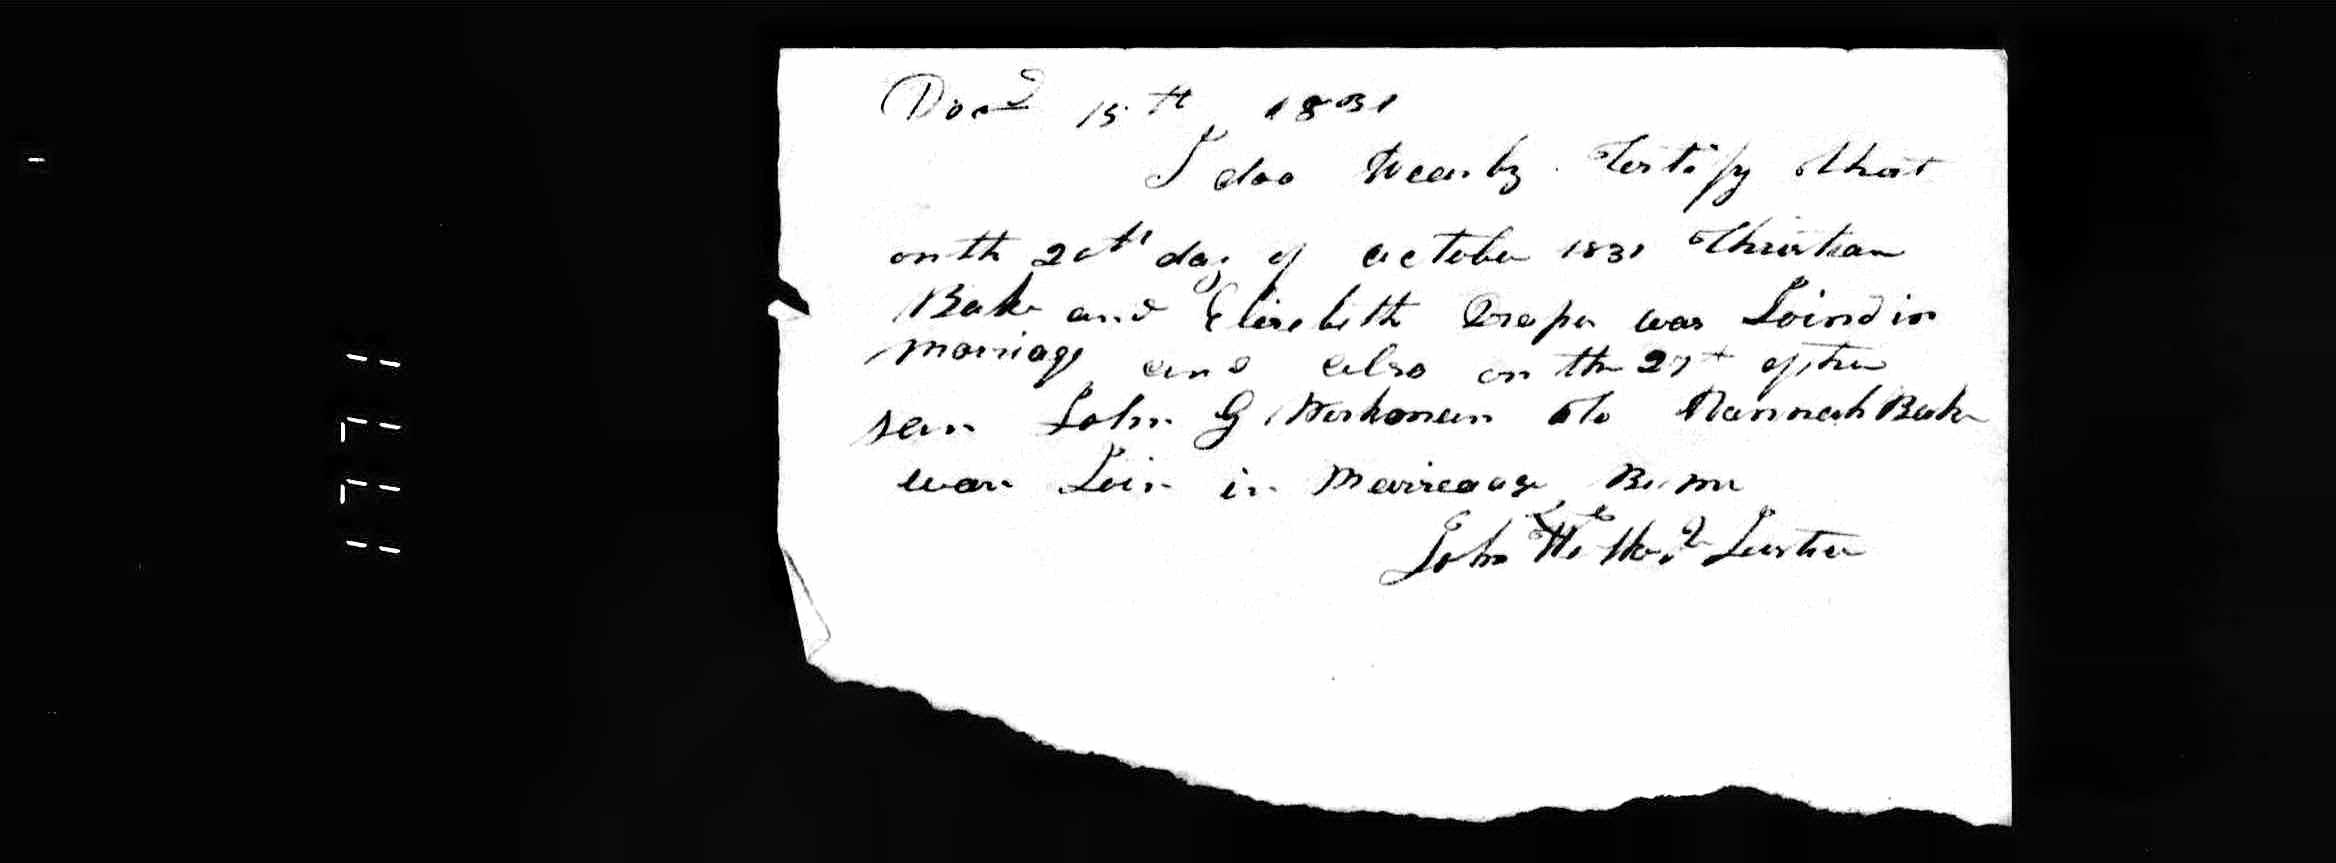 Decd 15th 1831
I doo heearby Certify that
on th 20th day of October 1831 Christian
Bake and Elizebeth Draper was Joind in
marriage and also on the 27t of the
sam John G Workman to Hannah Bake
was Join in Marrieage By me
John Justice